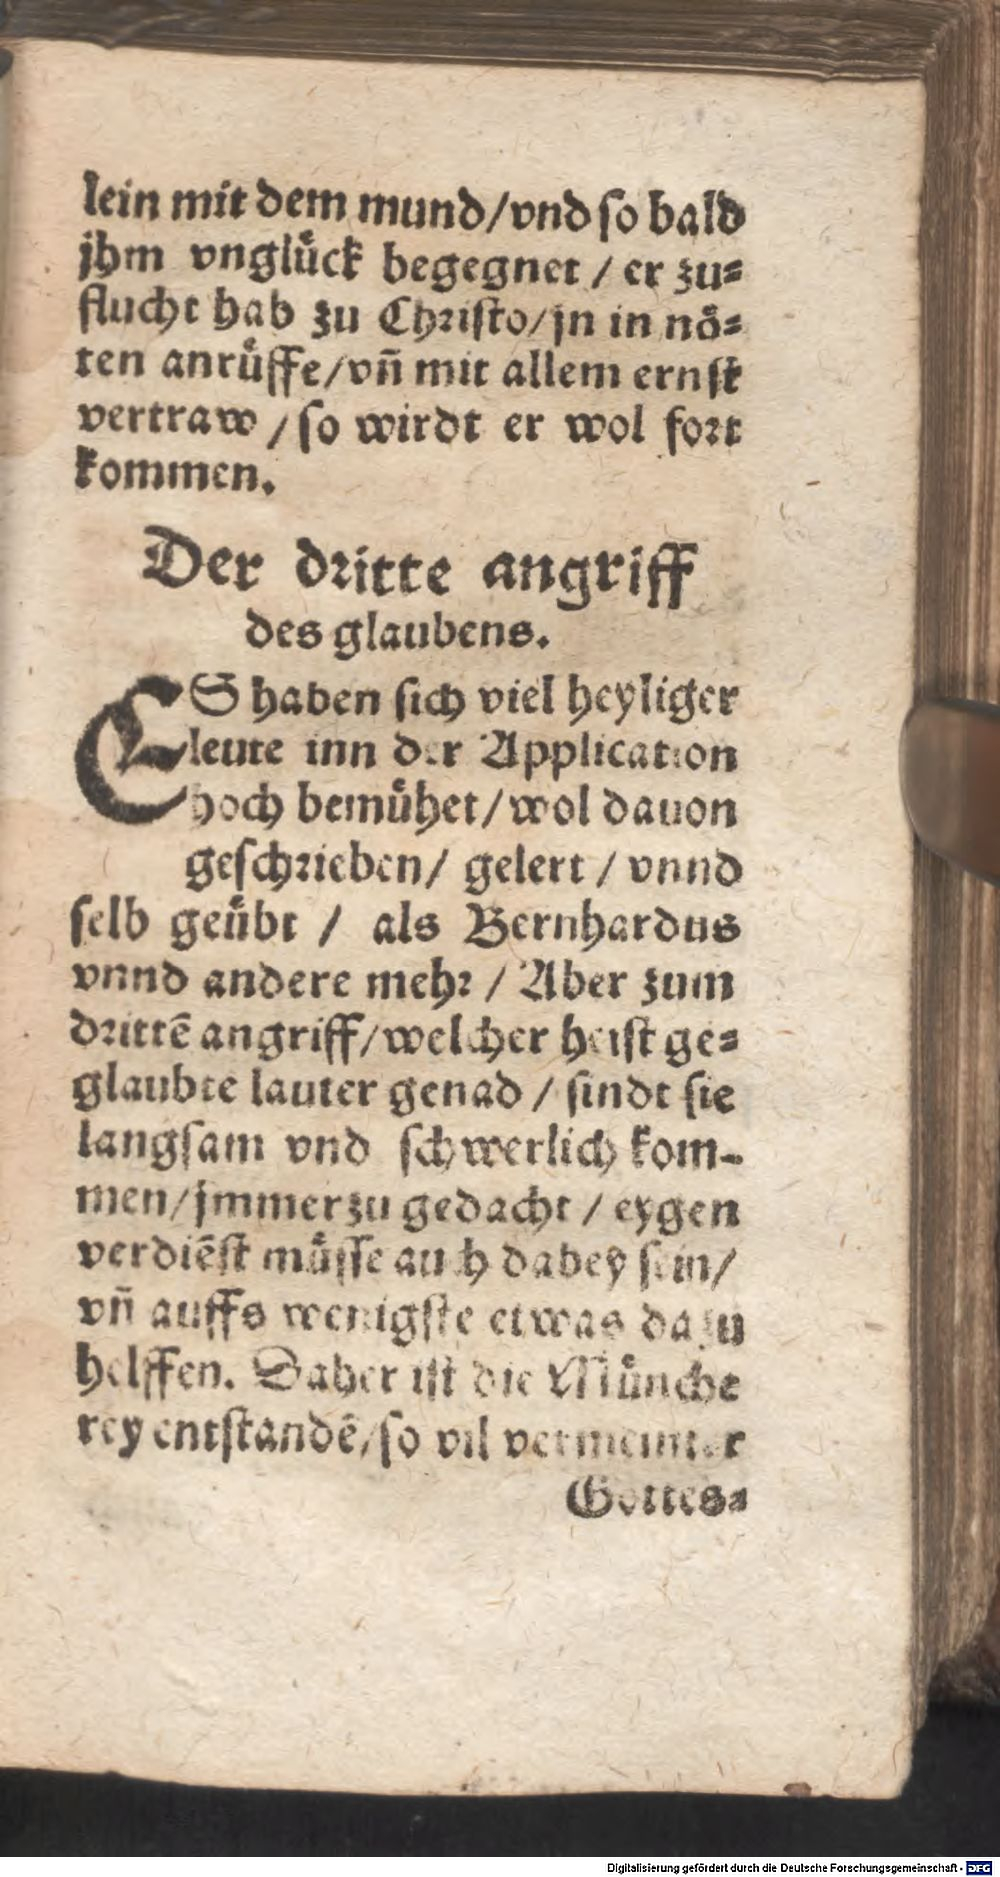 lein mit dem mund/vnd ſo bald
jhm vngluͤck begegnet / er zu⸗
flucht hab zu Chriſto/jn in noͤ⸗
ten anruͤffe/vñ mit allem ernſt
vertraw / ſo wirdt er wol fort
kommen.
Der dritte angriff
des glaubens.
ES haben ſich viel heyliger
leute inn der Application
hoch bemuͤhet/wol dauon
geſchrieben/ gelert / vnnd
ſelb geuͤbt / als Bernhardus
vnnd andere mehr / Aber zum
drittẽ angriff/welcher heiſt ge⸗
glaubte lauter genad / ſindt ſie
langſam vnd ſchwerlich kom-
men/jmmerzu gedacht / eygen
verdiẽſt muͤſſe auch dabey ſein/
vñ auffs wenigſte etwas dazu
helffen. Daher iſt die Muͤnche
rey entſtandẽ/ſo vil vermeinter
Gottes⸗
Digitalisierung gefördert durch die Deutsche Forschungsgemeinschaft - DFG